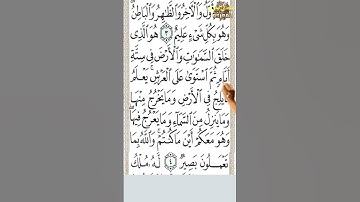 وَّلُ وَالْآخِرُ وَالظَّاهِرُ وَالْبَاطِنُ
وَهُوَ بِكُلِّ شَيْءٍ عَلِيمٌ ٣ هُوَ الَّذِي
خَلَقَ السَّمَاوَاتِ وَالْأَرْضَ فِي سِتَّةِ
أَيَّامٍ ثُمَّ اسْتَوَىٰ عَلَى الْعَرْشِ يَعْلَمُ
يَلِجُ فِي الْأَرْضِ وَمَا يَخْرُجُ مِنْهَا
وَمَا يَنزِلُ مِنَ السَّمَاءِ وَمَا يَعْرُجُ فِيهَا
وَهُوَ مَعَكُمْ أَيْنَ مَا كُنتُمْ وَاللَّهُ بِمَا
تَعْمَلُونَ بَصِيرٌ ٤ لَهُ مُلْكُ